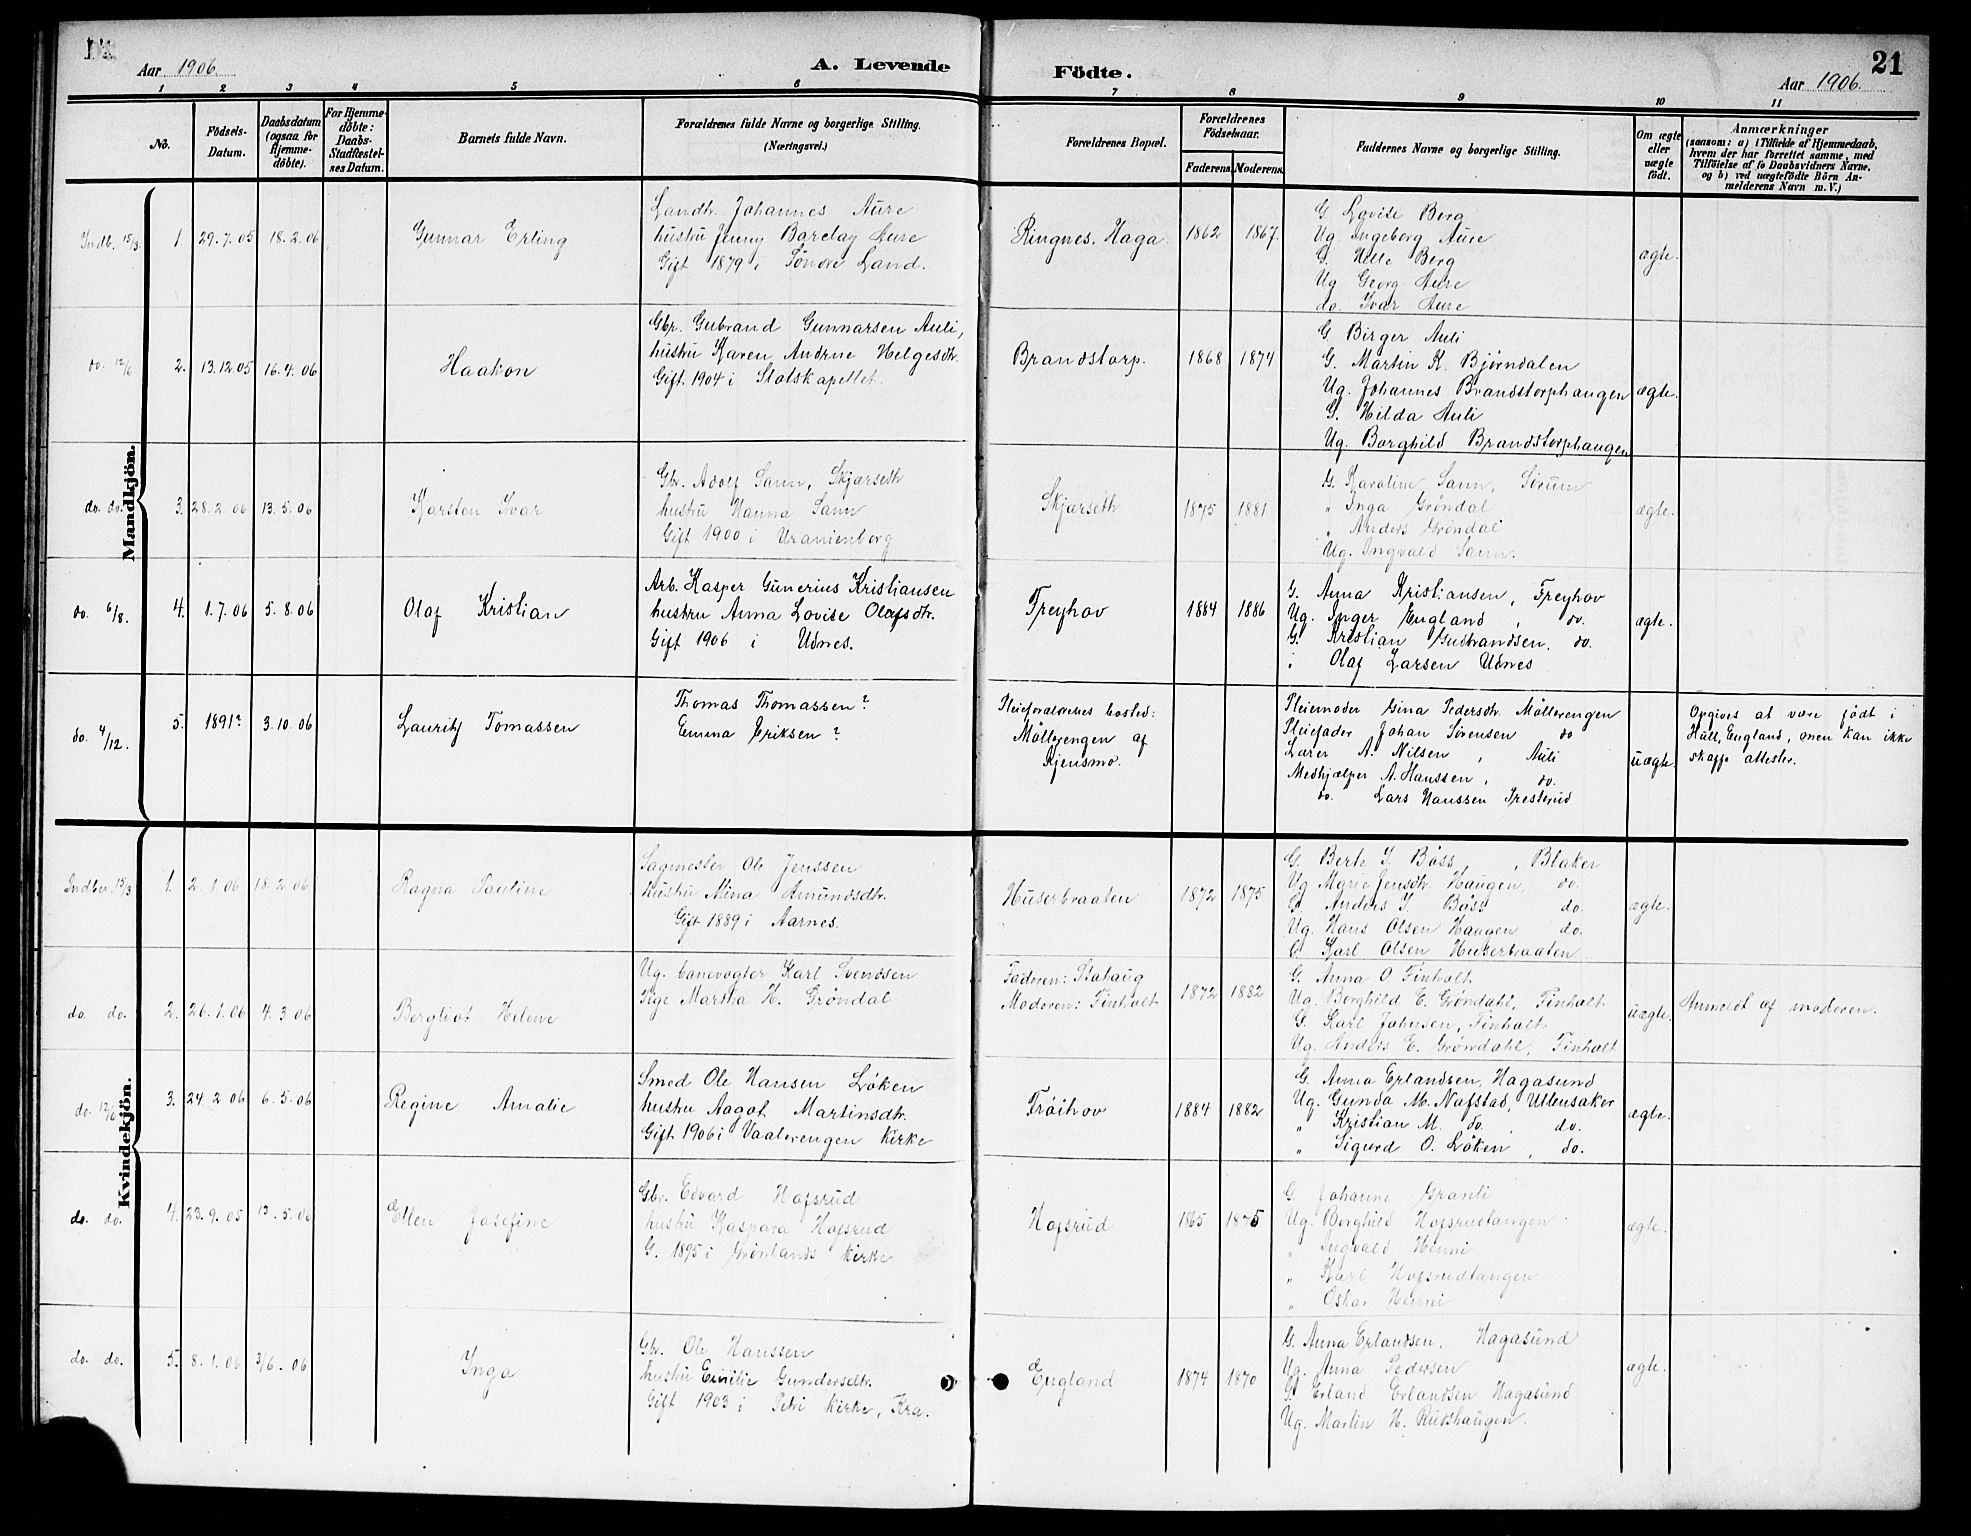 Aar 1906.
A. Levende
Födte.
21
Aar 1906.
1 2 3 4 5 6 7 8 9 10 11
No.
Födsels-
Datum.
Daabsdatum
(ogsaa for
Hjemme-
döbte).
For Hjemme-
döbte:
Daabs-
Stadfæstel-
ses Datum.
Barnets fulde Navn.
Forældrenes fulde Navne og borgerlige Stilling.
(Næringsvei.)
Forældrenes Bopæl.
Forældrenes
Födselsaar.
Faderens. Moderens.
Faddernes Navne og borgerlige Stilling.
Om ægte
eller
uægte
födt.
Anmærkninger
(saasom: a) i Tilfælde af Hjemmedaab,
hvem der har forrettet samme, med
Tilföielse af to Daabsvidners Navne.
og b) ved uægtefödte Börn An-
melderens Navn m. V.)
Mandkjön.
Indb. 15/3. 1. 29.7.05 18.2.06 Gunnar Erling
Landh. Johannes Aure
hustru Jenny Barclay Aure
Gift 1879 i Söndre Land.
Ringnes, Haga. 1862 1867.
G. Lovise Berg
Ug. Ingeborg Aure
G. Helle Berg
Ug. Georg Aure
do. Ivar Aure
ægte.
do. 12/6 2. 13.12.05 16.4.06 Haakon
Gbr. Gubrand Gunnarsen Auli,
hustru Karen Andrine Helgesdtr.
Gift 1904 i Slotskapellet.
Brandstorp. 1868 1874
G. Birger Auli
G. Martin K. Bjørndalen
Ug. Johannes Brandstorphaugen
G. Hilda Auli
Ug. Borghild Brandstorphaugen
ægte.
do. do. 3. 28.2.06 13.5.06 Karsten Ivar
Gbr. Adolf Sann, Skjærseth
hustru Hanna Sann
Gift 1900 i Uranienborg
Skjærseth 1875 1881
G. Karoline Sann, Sørum
" Inga Grøndal
" Anders Grøndal
Ug. Ingvald Sann.
ægte.
do. 6/8. 4. 1.7.06 5.8.06 Olaf Kristian
Arb. Kasper Gunerius Kristiansen
hustru Anna Lovise Olafsdtr.
Gift 1906 i Udnes.
Freyhov 1884 1886
G. Anna Kristiansen, Freyhov
Ug. Inger England, do.
G. Kristian Gudbrandsen, do.
" Olaf Larsen Udnes
ægte.
do. 4/12. 5. 1891? 3.10.06 Lauritz Tomassen
Thomas Thomassen?
Emma Eriksen?
Pleieforældrenes bosted:
Möllerengen af
Kjensmo.
Pleiemoder Gina Pedersdtr. Möllerengen
Pleiefader Johan Sörensen do
Lærer A. Nilsen, Auli
Medhjælper A. Hanssen, do.
do. Lars Hanssen Presterud
uægte
Opgives at være födt i
Hull, England, men kan ikke
skaffe attester.
Kvindekjön.
Indber. 15/3 1. 2.1.06 18.2.06 Ragna Pauline
Sagmester Ole Jenssen
hustru Mina Amundsdtr.
Gift 1889 i Aarnes.
Huserbraaten 1872 1875
G. Berte J. Böss, Blaker
Ug Marie Jensdtr. Haugen, do.
G. Anders J. Böss do.
Ug. Hans Olsen Haugen do.
G Karl Olsen Huserbraaten
ægte.
do. do. 2. 26.1.06 4.3.06 Bergliot Helene
Ug. banevogter Karl Svendsen
Pige Martha H. Grøndal
Faderen: Stahaug
Moderen: Finholt
1872 1882
G. Anna O Finholt
Ug. Borghild E. Grøndahl, Finholt
G. Karl Johnsen, Finholt
Ug. Anders E. Grøndahl, Finholt
uægte. Anmeldt af moderen.
do. 12/6 3. 24.2.06 6.5.06 Regine Amalie
Smed Ole Hansen Løken
hustru Aagot Martinsdtr.
Gift 1906 i Vaalerengen Kirke
Frøihov 1884 1882
G. Anna Erlandsen, Hagasund
Ug. Gunda M. Nafstad, Ullensaker
" Kristian M. do., do.
" Sigurd O. Løken, do.
ægte.
do. do. 4. 23.9.05 13.5.06 Ellen Josefine
Gbr. Edvard Hofsrud
hustru Kaspara Hofsrud
G. 1895 i Grönlands Kirke
Hofsrud 1865 1875
G. Johanne Granli
Ug. Borghild Hofsrudtangen
" Ingvald Henni
" Karl Hofsrudtangen
" Oskar Henni
ægte.
do. do. 5. 8.1.06 3/6.06 Inga
Gbr. Ole Hanssen
hustru Emilie Gundersdtr.
Gift 1903 i Petri kirke, Kra.
England 1874 1870
G. Anna Erlandsen, Hagasund
Ug. Anna Pedersen
G. Erland Erlandsen Hagasund
Ug. Martin H. Rudshaugen.
ægte.